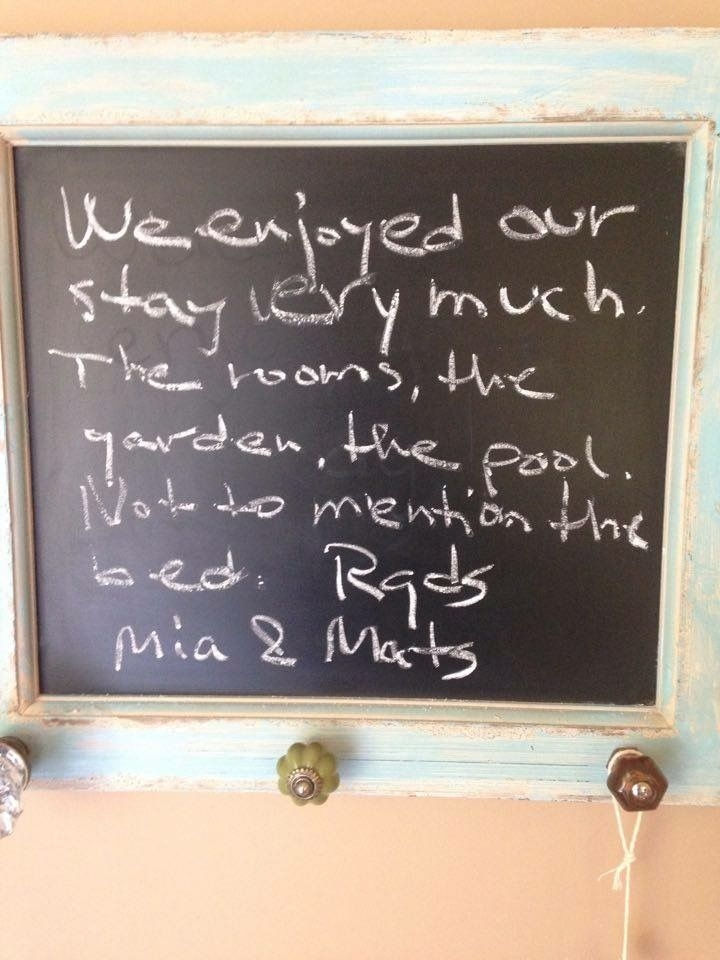 We enjoyed our
stay very much.
The rooms, the
garden, the pool.
Not to mention the
bed. Rgds
Mia & Mats